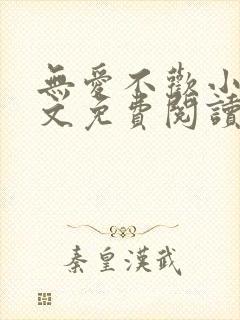 無愛不歡小
文免費閱讀
秦皇漢武